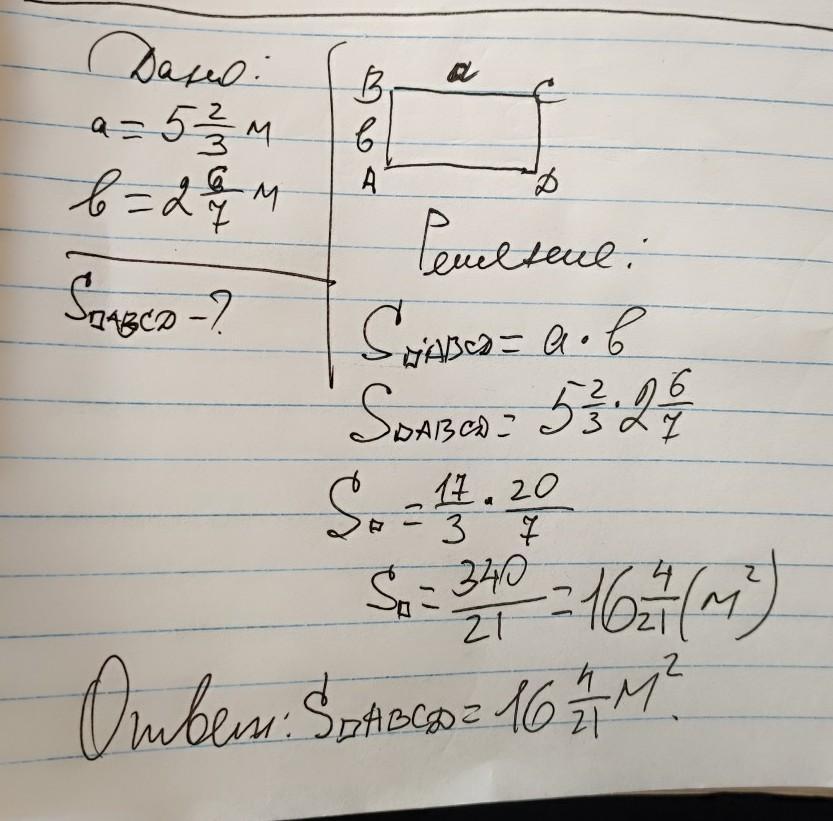 Дано:
a = 5 2/3 м
b = 2 6/7 м
S□ABCD - ?
a
B C
b
A D
Решение:
S□ABCD = a · b
S□ABCD = 5 2/3 · 2 6/7
S□ = 17/3 · 20/7
S□ = 340/21 = 16 4/21 (м²)
Ответ: S□ABCD = 16 4/21 м².